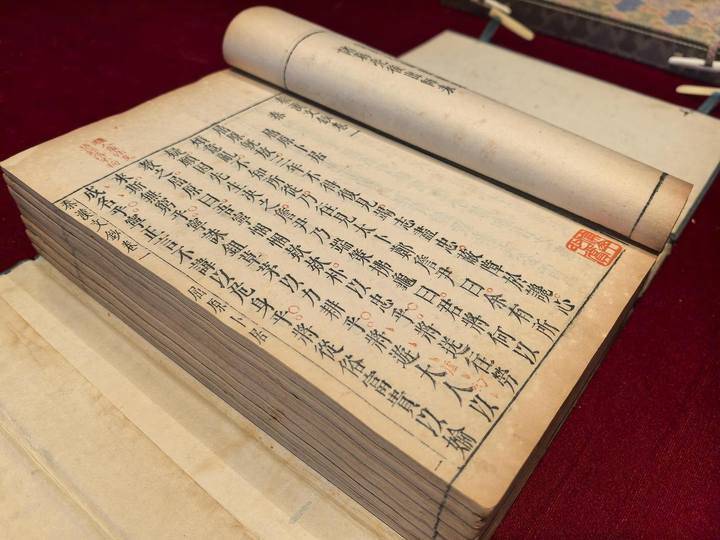 秦漢文鈔卷一
秦
屈原卜居
屈原既放三年不得復見竭志盡忠蔽障於讒心
煩意亂不知所從乃往見太卜鄭詹尹曰余有所
疑願因先生決之詹尹乃端筴拂龜曰君將何以
教之屈原曰寧悃悃欵欵朴以忠乎將送往勞
來斯無窮乎寧誅鉏草茅以力耕乎將遊大人以
成名乎寧正言不諱以危身乎將從俗富貴以媮
秦漢文鈔卷一
屈原卜居
一